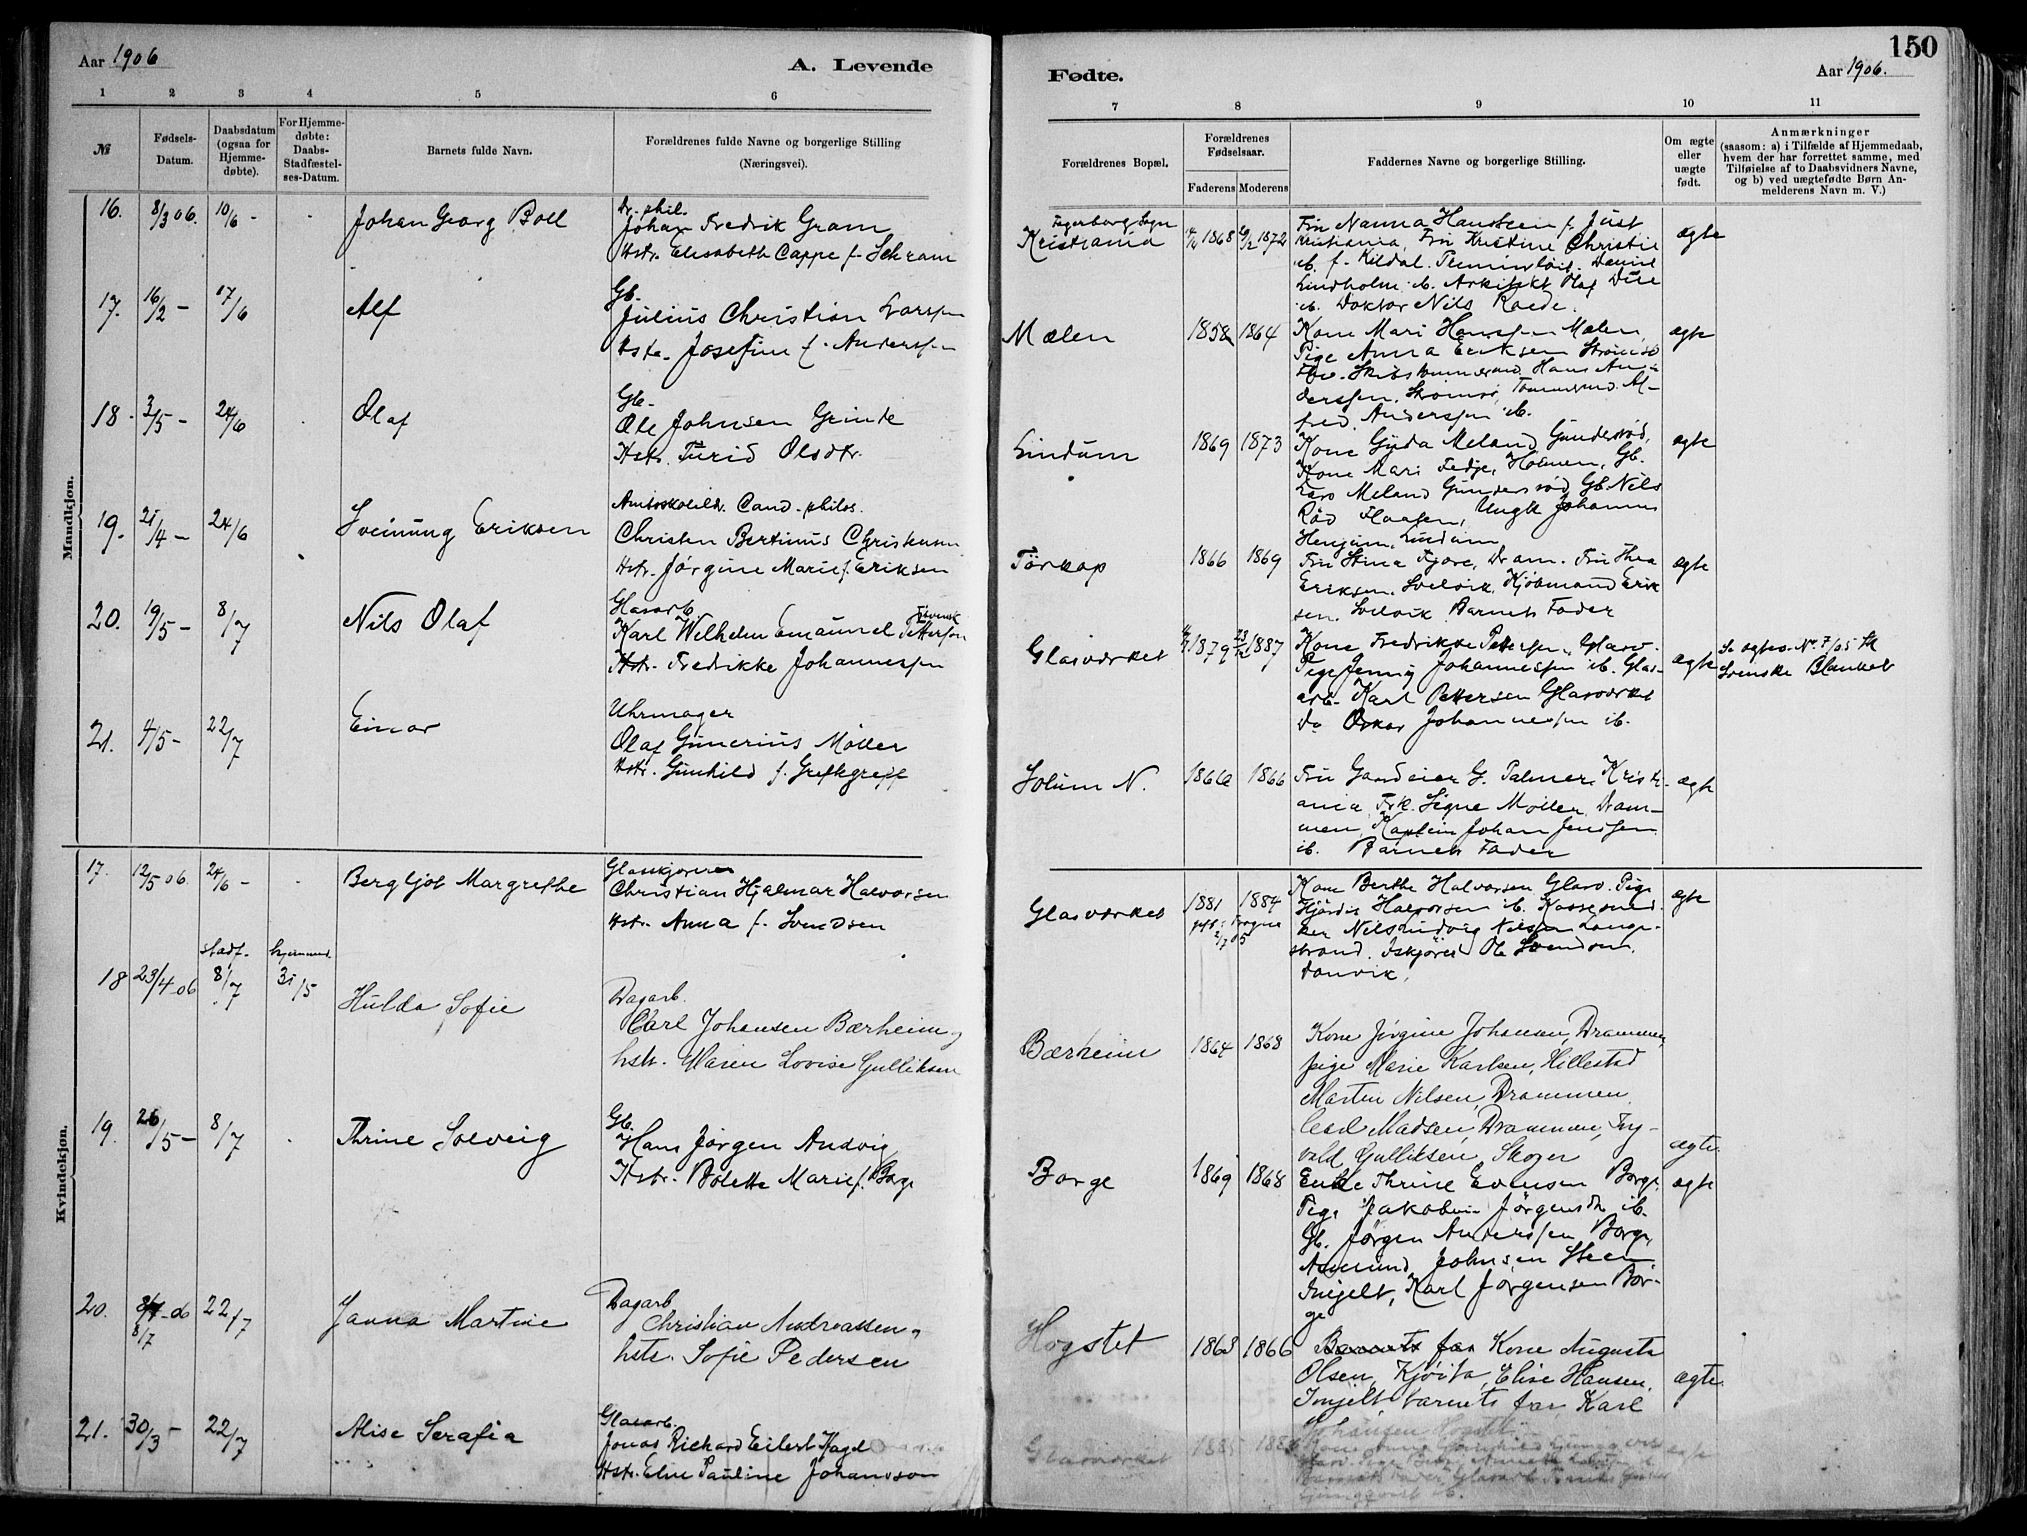 Aar 1906
A. Levende
1 2 3 4 5 6
№
Fødsels-Datum.
Daabsdatum (ogsaa for Hjemme-døbte).
For Hjemme-døbte: Daabs-Stadfæstel-ses-Datum.
Barnets fulde Navn.
Forældrenes fulde Navne og borgerlige Stilling
(Næringsvei).
Mandkjøn.
16. 8/3 06. 10/6 - Johan Georg Boll
Dr. phil.
Johan Fredrik Gram
Hstr. Elisabeth Cappe f. Schram
17. 16/2 - 17/6 Alf
Gb.
Julius Christian Larssen
Hstr. Josefine f. Anderssen
18. 3/5 - 24/6 Olaf
Gb.
Ole Johnsen Grinde
Hstr. Turid Olsdtr.
19. 25/4 - 24/6 Sveinung Eriksen
Cand. philos.
Christen Bertinus Christensen
Hstr. Jørgine Marie f. Eriksen
20. 19/5 - 8/7 Nils Olaf
Glasarb.
Karl Wilhelm Emanuel Pettersson
Hstr. Fredrikke Johannessen
21. 4/5 - 22/7 Einar
Uhrmager
Olaf Gunerius Møller
Hstr. Gunhild f.
Kvindekjøn.
17. 12/5 06. 24/6 - Bergljot Margrethe
Christian Hjalmar Halvorsen
Hstr. Anna f. Svendsen
stadf. hjemmed.
18 23/4 06 8/7 31/5 Hulda Sofie
Dagarb.
Carl Johansen Bærheim
hstr. Maren Lovise Gulliksen
19. 26/5 - 8/7 Thrine Solveig
Gb.
Hans Jørgen Andvig
Hstr. Bolette Marie f. Borge
20. 8/7 22/7 Janna Martine
Dagarb
Christian Andreassen
hstr. Sofie Pedersen
21. 30/3 - 22/7 Alise Serafia
Glasarb.
Jonas Richard Eilert
Hstr. Elne Pauline Johansson
150
Fødte.
Aar 1906.
7 8 9 10 11
Forældrenes Bopæl.
Forældrenes Fødselsaar.
Faderens Moderens
Faddernes Navne og borgerlige Stilling.
Om ægte eller uægte født.
Anmærkninger
(saasom: a) i Tilfælde af Hjemmedaab,
hvem der har forrettet samme, med
Tilføielse af to Daabsvidners Navne,
og b) ved uægtefødte Børn An-
melderens Navn m. V.)
Fagerborg Sogn
Kristiania 1868 1872 ægte
Fru Nanna Hansteen f. Just
Kristiania, Fru Kristine Christie
ib. f. Kildal.
Lindholm ib. Arkitekt Olaf Due
ib. Doktor Nils Roede.
Mælen 1858 1864 ægte
Kone Mari Hanssen Mælen,
Pige Anna Eriksen Strømsø
Hans An-
derssen, Tømmermd. Al-
fred Anderssen ib.
Lindum 1869 1873 ægte
Kone Gyda Meland Gundersrød,
Kone Mari Fedje, Holmen, Gb.
Lars Meland Gundersrød Gb. Nils
Rød Ungk Johannes
Henjum, Lindum
Tørkop 1866 1869 ægte
Fru Stina Fjøre, Dram. Fru Thea
Eriksen, Svelvik, Kjøbmand Erik-
sen. Svelvik. Barnets Fader
Glasværket 1879 23/12 1887 ægte
Kone Fredrikke Pettersen, Glasv.
Pige Jenny Johannessen ib. Glas-
arb. Karl Pettersen Glasværket
Do Oskar Johannessen ib.
Svenske Blanket
Solum N. 1866 1866 ægte
Fru Gaardeier G. Palmer, Kristi-
ania, Frk. Signe Møller, Dram-
men, Kaptein Johan Jenssen
ib. Barnets Fader
Glasværket 1881 1884 ægte
Kone Berthe Halvorsen Glasv. Pige
Hjørdis Halvorsen ib.
Nils Ludvig Nilsen Lange-
strand. Ole Svendsen,
Danvik.
Bærheim 1864 1868 ægte
Kone Jørgine Johansen, Drammen,
pige Marie Karlsen, Hillestad
Martin Nilsen, Drammen,
Carl Madsen, Drammen, Ing-
vald Gulliksen, Skoger
Borge 1869 1868 ægte
Enke Thrine Evensen Borge,
Pige Jakobine Jørgensdtr ib.
Gb. Jørgen Anderssen Borge,
Amund Johnsen Steen,
Ungk, Karl Jørgensen Bor-
ge
Hogstet 1863 1866 ægte
Barnets far Kone Augusta
Olsen, Elise Hansen,
barnets far, Karl
Johansen Hogstet
Glasværket